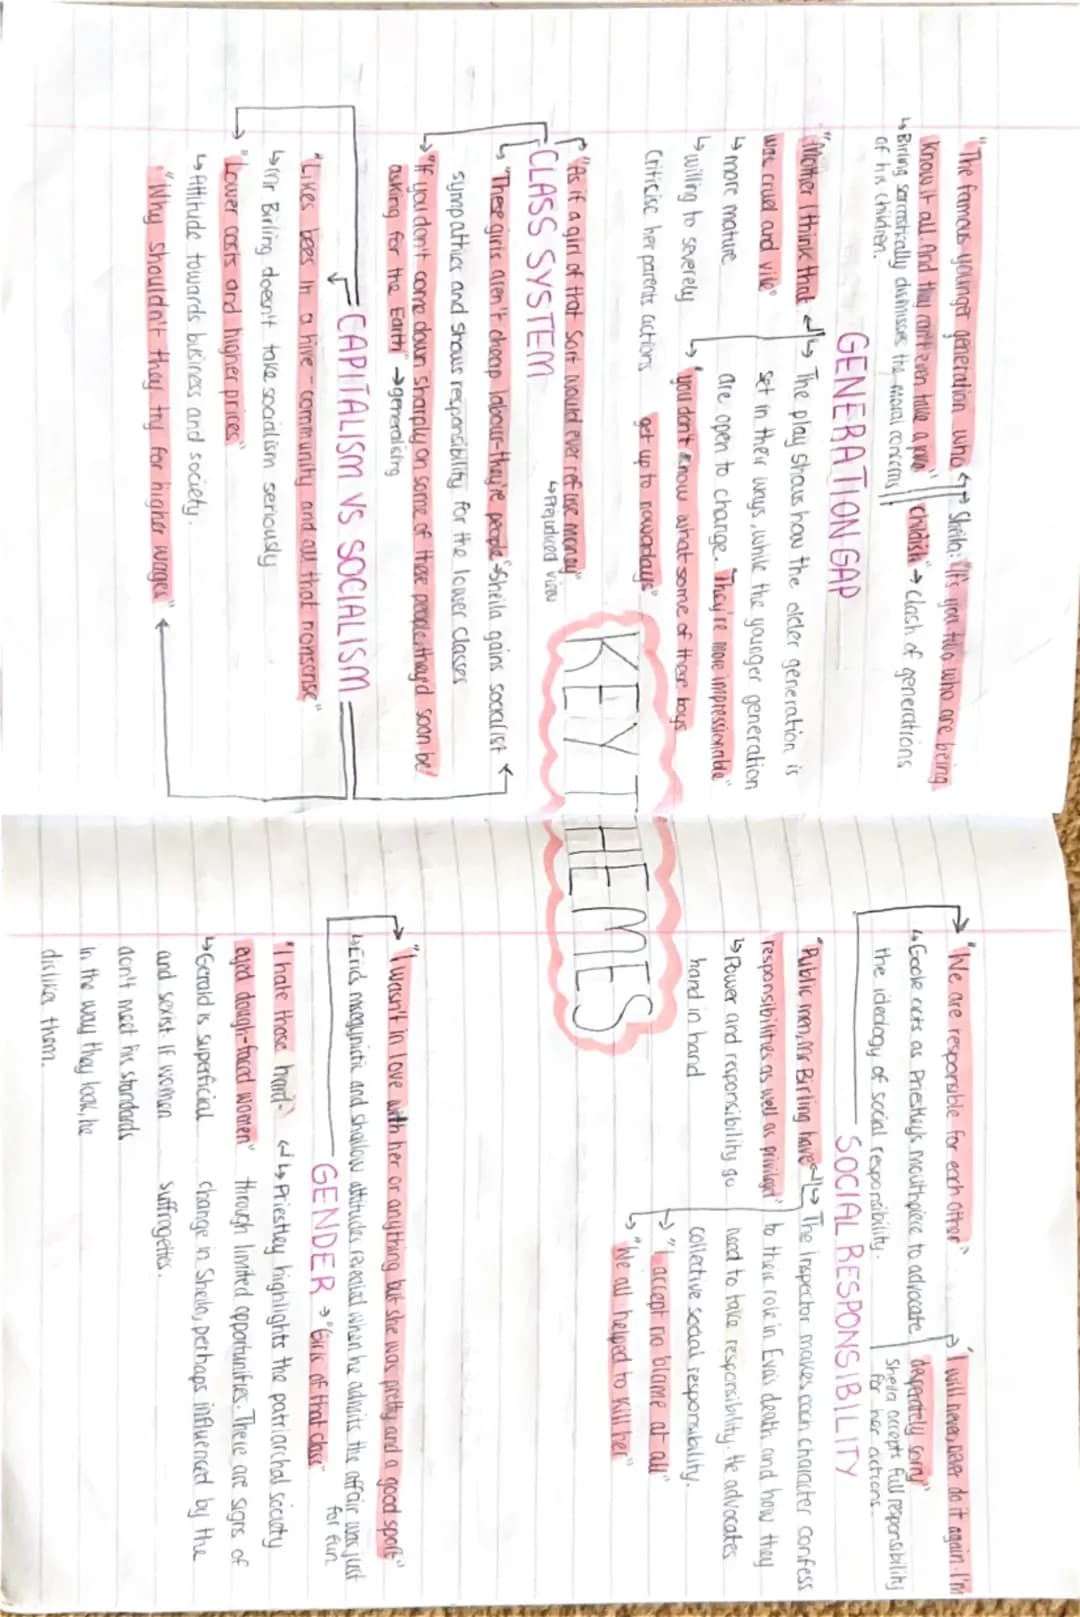 KEY THEMES
"The famous younger generation who
know it all. And they can't even take a joke"
↳ Birling sarcastically dismisses the moral concerns
of his children.
→ Sheila: "It's you two who are being
childish" → clash of generations
GENERATION GAP
"Mother I think that
was cruel and vile"
↳ more mature
↳ willing to severely
criticise her parents actions
↳ The play shows how the older generation is
set in their ways, while the younger generation
are open to change. "They're more impressionable"
↳ "you don't know what some of these boys
get up to nowadays"
"As if a girl of that sort would ever refuse money"
↳ Prejudiced view
CLASS SYSTEM
↳ "These girls aren't cheap labour-they're people" → Sheila gains socialist
sympathies and shows responsibility for the lower classes
→ "If you don't come down sharply on some of these people, they'd soon be
asking for the Earth" → generalising
CAPITALISM VS SOCIALISM
"Likes bees in a hive - community and all that nonsense"
↳ Mr Birling doesn't take socialism seriously
"Lower costs and higher prices"
↳ Attitude towards business and society.
"Why shouldn't they try for higher wages"
"We are responsible for each other"
↳ Goole acts as Priestley's mouthpiece to advocate
the ideology of social responsibility.
"I will never, never do it again. I'm
desperately sorry"
Sheila accepts full responsibility
for her actions.
SOCIAL RESPONSIBILITY
"Public men, Mr Birling have
responsibilities as well as privileges"
↳ Power and responsibility go
hand in hand
↳ The Inspector makes each character confess
to their role in Eva's death and how they
need to take responsibility. He advocates
collective social responsibility.
→ "I accept no blame at all"
↳ "We all helped to kill her"
"I wasn't in love with her or anything but she was pretty and a good sport"
↳ Erics misogynistic and shallow attitudes revealed when he admits the affair was just
for fun
GENDER → "Girls of that class"
"I hate those hard-
eyed dough-faced women"
↳ Gerald is superficial
and sexist. If women
don't meet his standards
in the way they look, he
dislikes them.
↳ Priestley highlights the patriarchal society
through limited opportunities. There are signs of
change in Sheila, perhaps influenced by the
suffragettes.